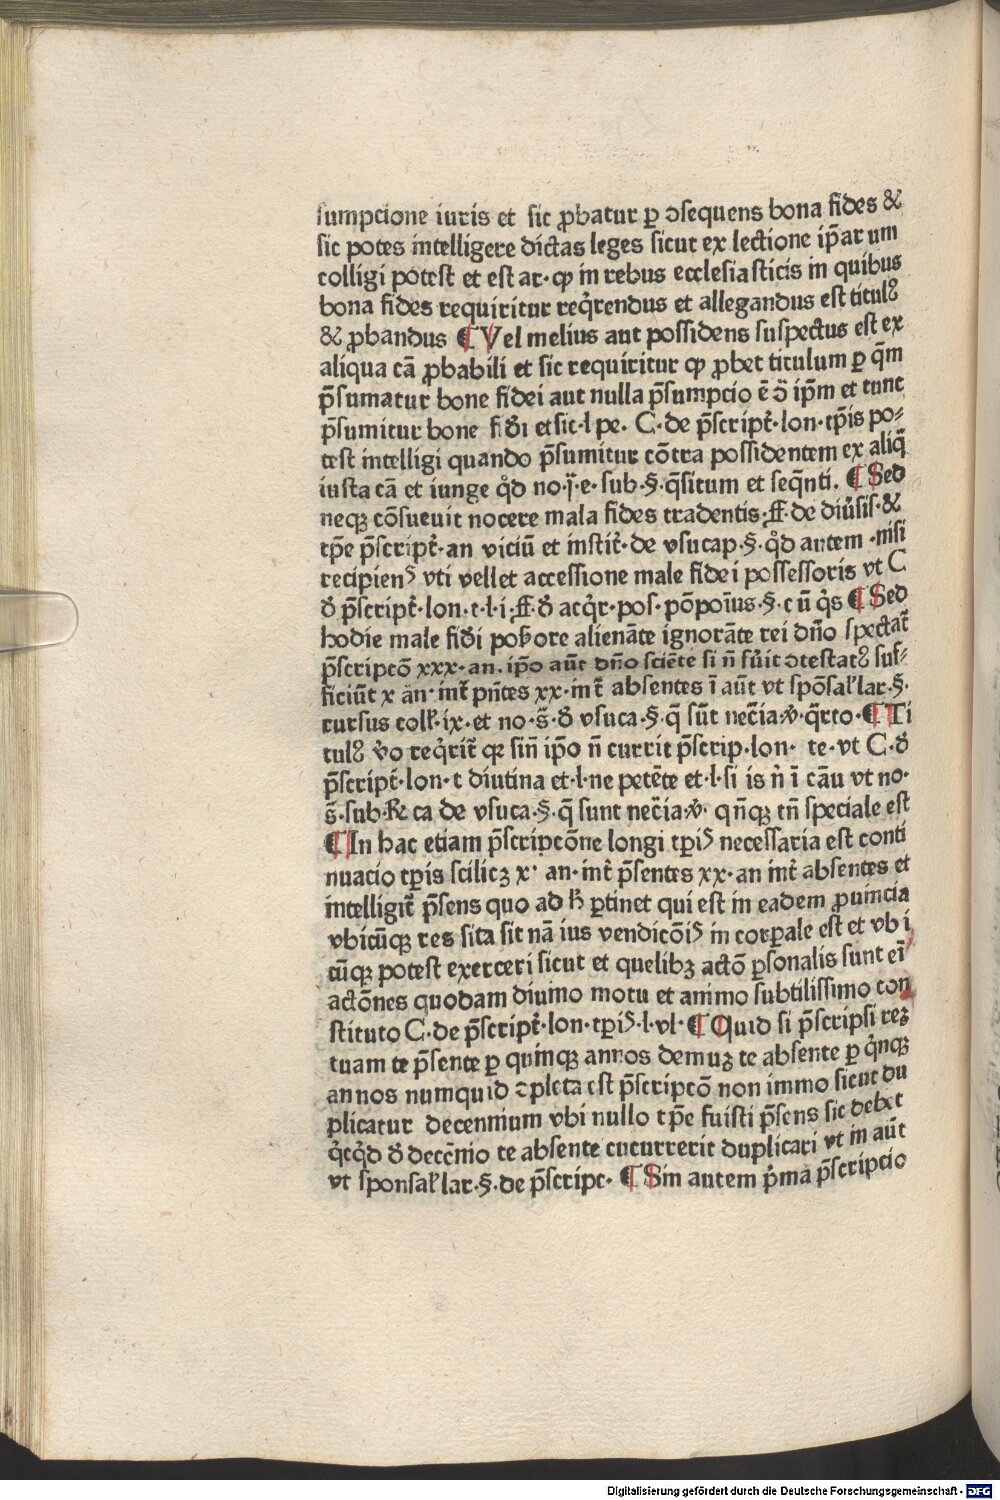 sumpcione iuris et sic ꝓbatur ꝑ ↄsequens bona fides &
sic potes intelligere dictas leges sicut ex lectione ip̃arum
colligi potest et est ar· ꝙ in rebus ecclesiasticis in quibus
bona fides requiritur req̃rendus et allegandus est titulꝰ
& ꝓbandus ¶ Vel melius aut possidens suspectus est ex
aliqua cã ꝓbabili et sic requiritur ꝙ ꝓbet titulum ꝑ q̃m
p̃sumatur bone fidei aut nulla p̃sumpcio ẽ ↄ̃ ip̃m et tunc
p̃sumitur bone fiđi et sic·l pe· C·de p̃script̃·lon·tp̃is po⸗
test intelligi quando p̃sumitur cõtra possidentem ex aliq̃
iusta cã et iunge q̊d no·j̃·e·sub·§·q̃situm et seq̃nti. ¶ Sed
neqꝫ cõsueuit nocere mala fides tradentis·ff·de diũsis·&
tp̃e p̃script̃·an viciũ et instit̃·de vsucap·§·q̊d autem ·nisi
recipienꝰ vti vellet accessione male fidei possessoris vt C
đ p̃script̃·lon·t·l·i·ff·đ acq̊r·pos·põpoĩus·§·cũ q̊s ¶ Sed
hodie male fiđi poẞore alienãte ignorãte rei dño spectat̃
p̃scripcõ xxx·an. ip̃o aũt dño sciẽte si ñ fũit ↄtestatꝰ suf⸗
ficiũt x ãn·int̃ pñtes xx·int̃ absentes ĩ aũt vt spõsal̃ lar·§·
rursus coll̃·ix·et no·s̃·đ vsuca·§·q̃ sũt nec̃ia·ꝟ·q̃rto·¶ Ti
tulꝰ ꝟo req̃rit̃ qꝛ siñ ip̃o ñ currit p̃scrip·lon· te·vt C·đ
p̃script̃·lon·t diutina et·l·ne petẽte et·l·si is ñ ĩ cãu vt no·
s̃·sub·℞ca de vsuca·§·q̃ sunt nec̃ia·ꝟ· qñqꝫ tñ speciale est
¶ In hac etiam p̃scripcõne longi tp̃iꝰ necessaria est conti
nuacio tp̃is scilicꝫ x· an·int̃ p̃sentes xx·an int̃ absentes et
intelligit̃ p̃sens quo ad h̃ ꝑtinet qui est in eadem ꝓuincia
vbicũqꝫ res sita sit nã ius vendicõiꝰ in corꝑale est et vbi
cũqꝫ potest exerceri sicut et quelibꝫ actõ ꝑsonalis sunt eĩ
actõnes quodam diuino motu et animo subtilissimo con
stituto C·de p̃script̃·lon·tp̃iꝰ·l·vl·¶ Quid si p̃scripsi reꝫ
tuam te p̃sente ꝑ quinqꝫ annos demuꝫ te absente ꝑ q̊nqꝫ
annos numquid ↄpleta est p̃scripcõ non immo sicut du
plicatur decennium vbi nullo tp̃e fuisti p̃sens sic debet
q̊cq̊d đ decẽnio te absente cucurrerit duplicari vt in aũt
vt sponsal̃ lar·§·de p̃scripc· ¶ Sin autem p̊ma p̃scriptio
Digitalisierung gefördert durch die Deutsche Forschungsgemeinschaft · DFG